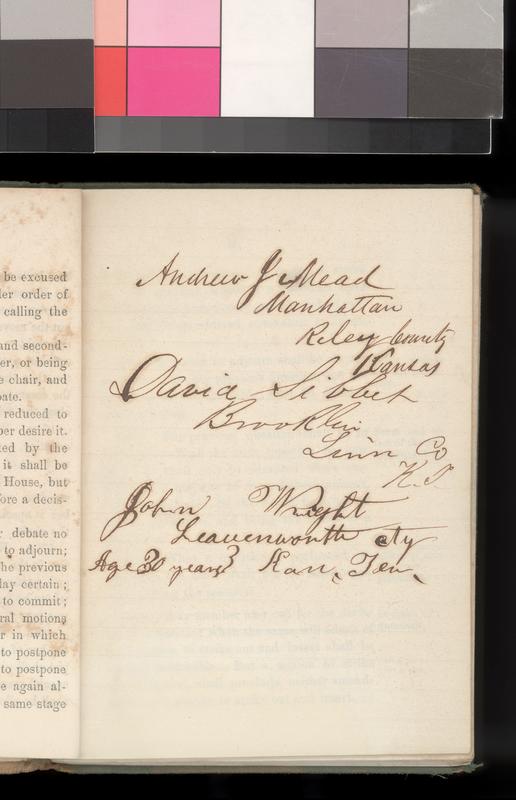 be excused
order of
calling the
and second-
er, or being
chair, and
reduced to
desire it.
by the
it shall be
House, but
debate no
to adjourn;
previous
certain;
to commit;
motions
in which
to postpone
to postpone
again al-
same stage
Andrew J Mead
Manhattan
Riley County
Kansas
David Sibbet
Brooklin
Linn Co
K.T
John Wright
Leavenworth city
Age 30 years Kan. Ter.